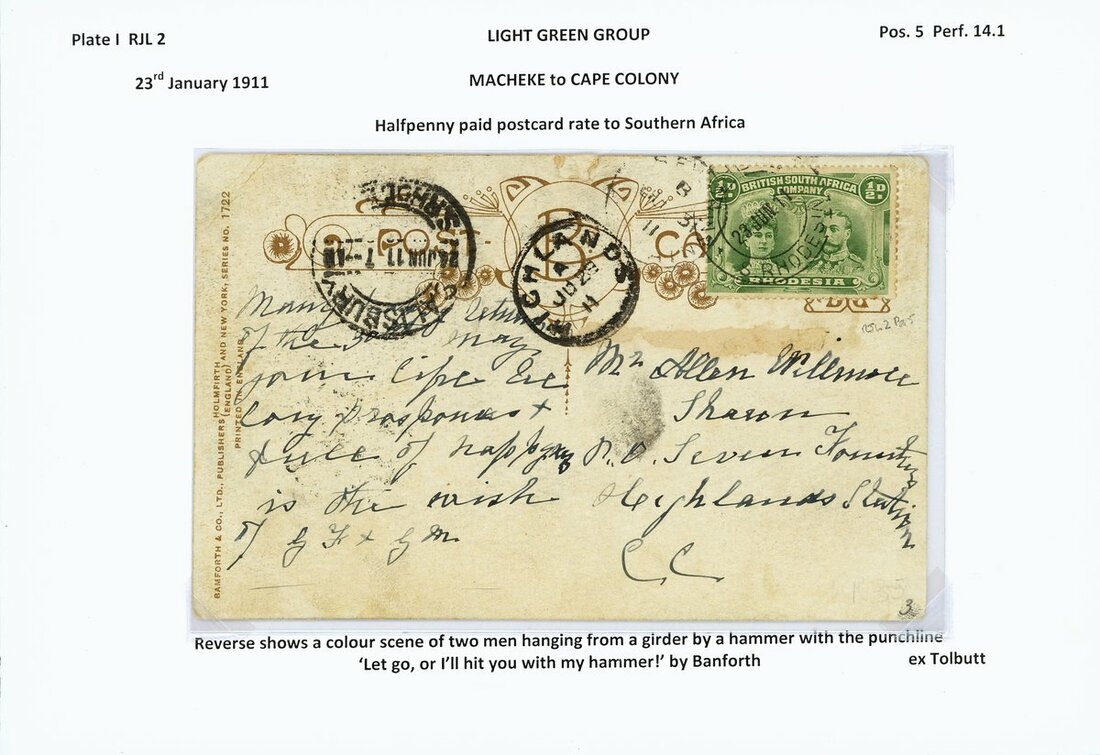 Plate I RJL 2
LIGHT GREEN GROUP
Pos. 5 Perf. 14.1
23rd January 1911
MACHEKE to CAPE COLONY
Halfpenny paid postcard rate to Southern Africa
POST CA
B
SALISBURY
24 JUN 11 7 - AM
HIGHLANDS
A
JU 2
11
B
3
11
23 JUN 11
RHODESIA
½D.
BRITISH SOUTH AFRICA
COMPANY
½D.
RHODESIA
RJL 2 Pos 5
BAMFORTH & CO., LTD., PUBLISHERS HOLMFIRTH (ENGLAND) AND NEW YORK, SERIES NO. 1722
PRINTED IN ENGLAND
Many
of the 3 May
your life be
long prosperous &
full of happy
is the wish
of G F & G M
Mr Allen Willmore
Sharon
P.O. Seven Fountains
Highlands Station
C C
3
Reverse shows a colour scene of two men hanging from a girder by a hammer with the punchline
‘Let go, or I’ll hit you with my hammer!’ by Banforth
ex Tolbutt